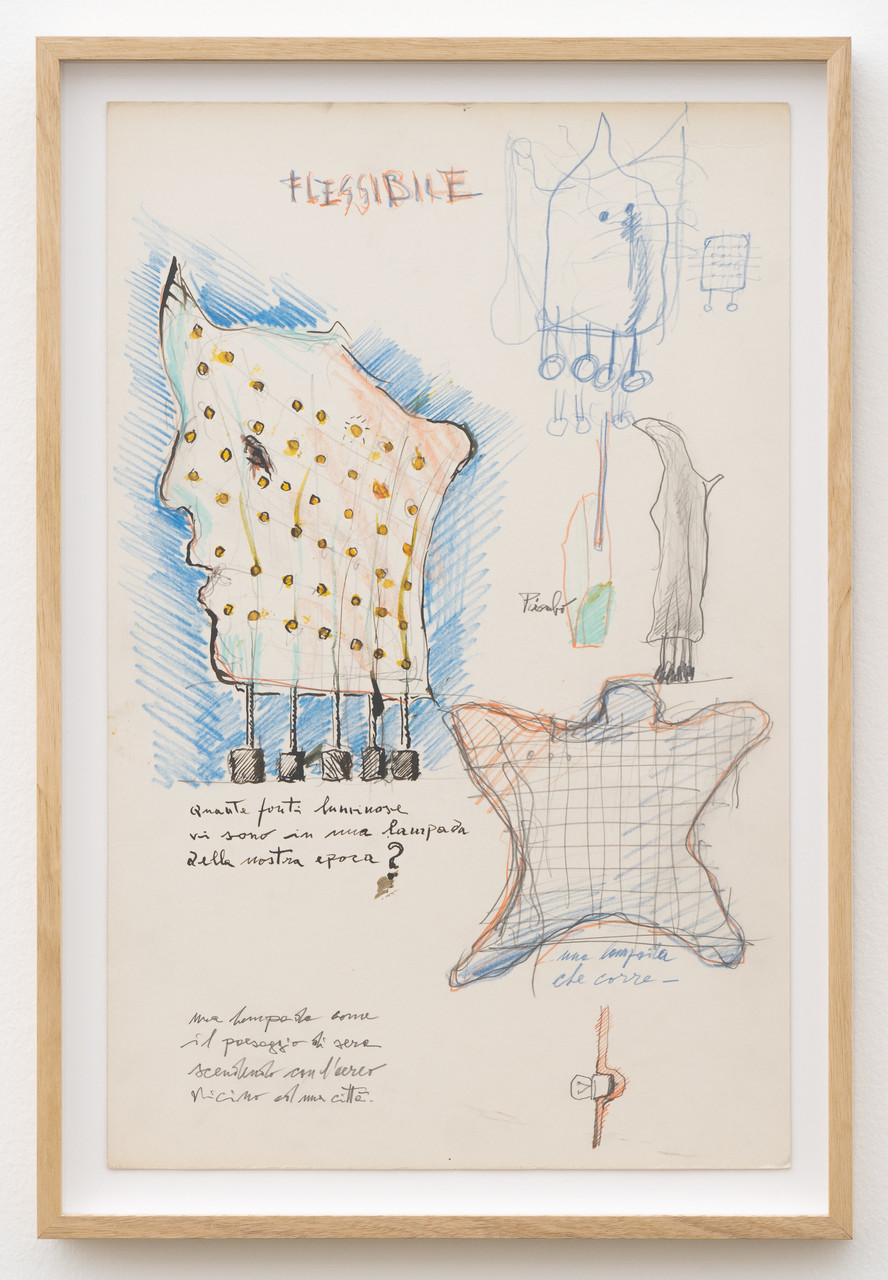 FLESSIBILE
quante fonti luminose
vi sono in una lampada
della nostra epoca?
una lampada
che corre —
una lampada come
il paesaggio di sera
scendendo con l'aereo
vicino ad una città.